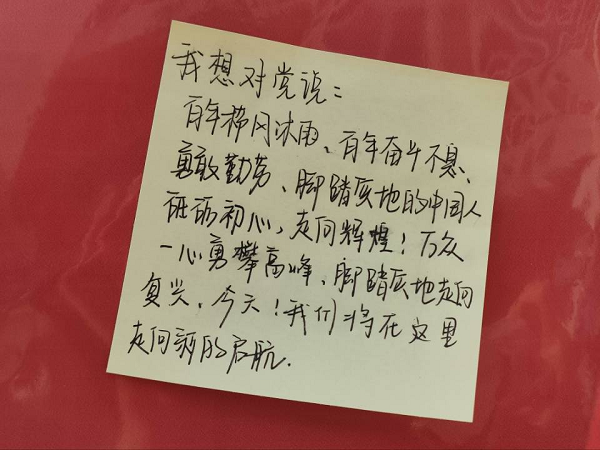 我想对党说：
百年栉风沐雨、百年奋斗不息、
勇敢勤劳、脚踏实地的中国人
砥砺初心，走向辉煌！万众
一心勇攀高峰、脚踏实地走向
复兴，今天！我们将在这里
走向新的启航.